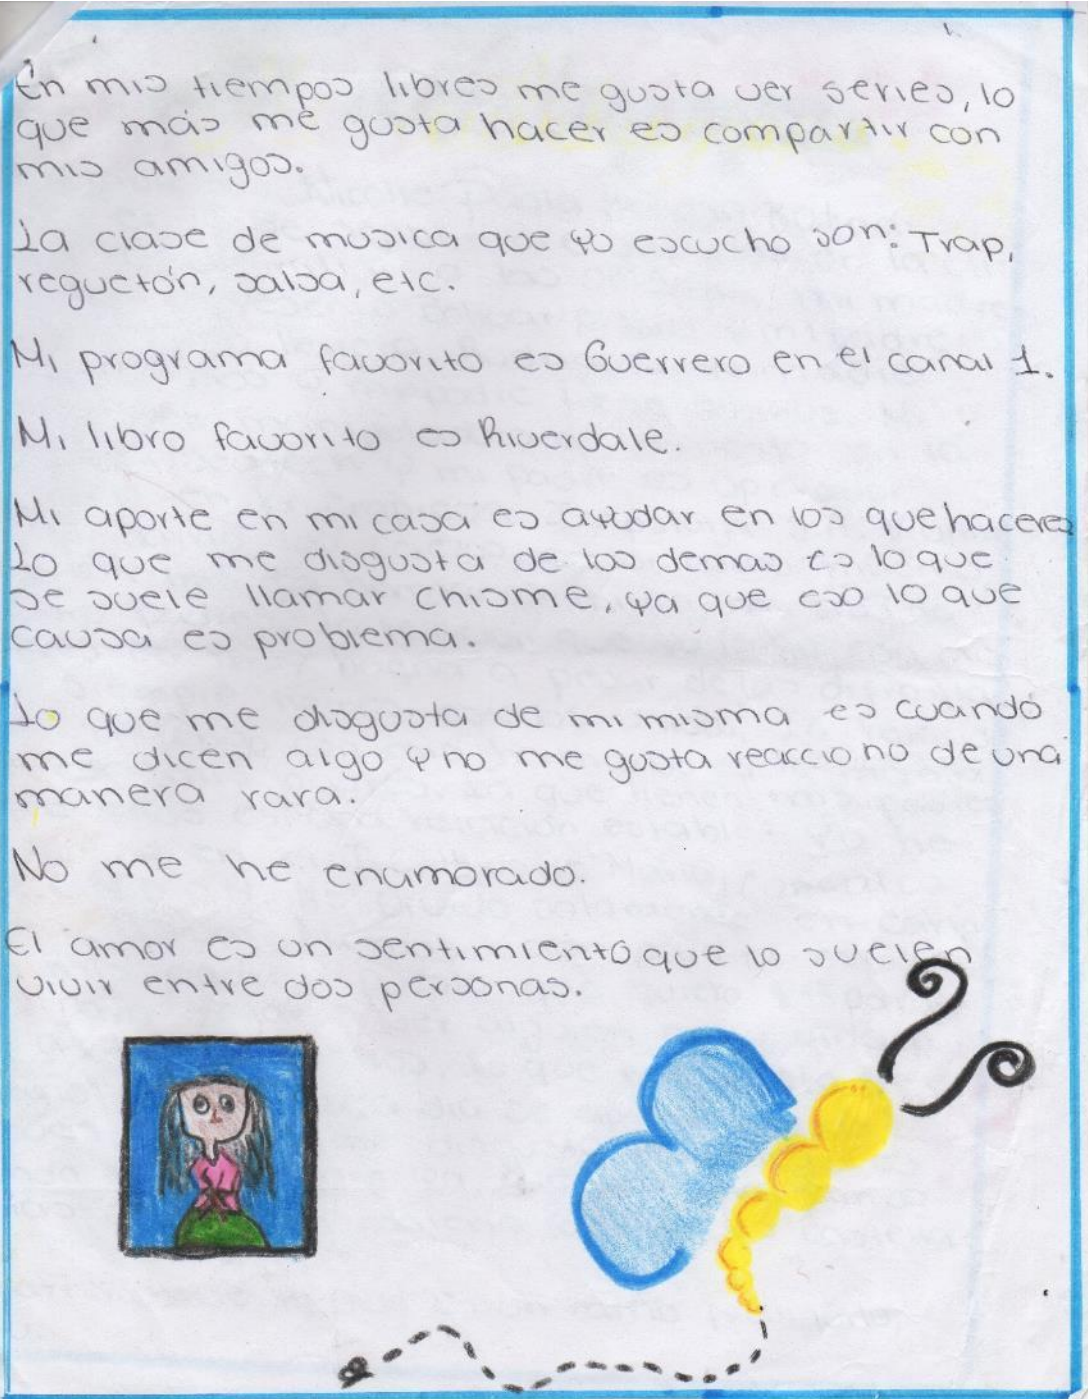 En mis tiempos libres me gusta ver series, lo
que más me gusta hacer es compartir con
mis amigos.
La clase de musica que yo escucho son: Trap,
reguetón, salsa, etc.
Mi programa favorito es Guerrero en el canal 1.
Mi libro favorito es Riverdale.
Mi aporte en mi casa es ayudar en los que haceres
Lo que me disgusta de los demas es lo que
se suele llamar chisme, ya que eso lo que
causa es problema.
Lo que me disgusta de mi misma es cuando
me dicen algo y no me gusta reacciono de una
manera rara.
No me he enamorado.
El amor es un sentimiento que lo suelen
vivir entre dos personas.